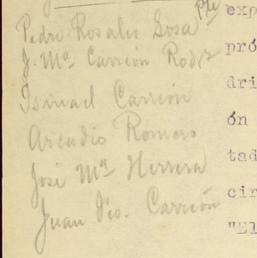 Pte
Pedro Rosales Sosa
J. Mª Carrión Rodz
Ismael Carrión
Arcadio Romero
José Mª Herrera
Juan Dio. Carrión
exp
pró
dri
ón
tad
cir
"El